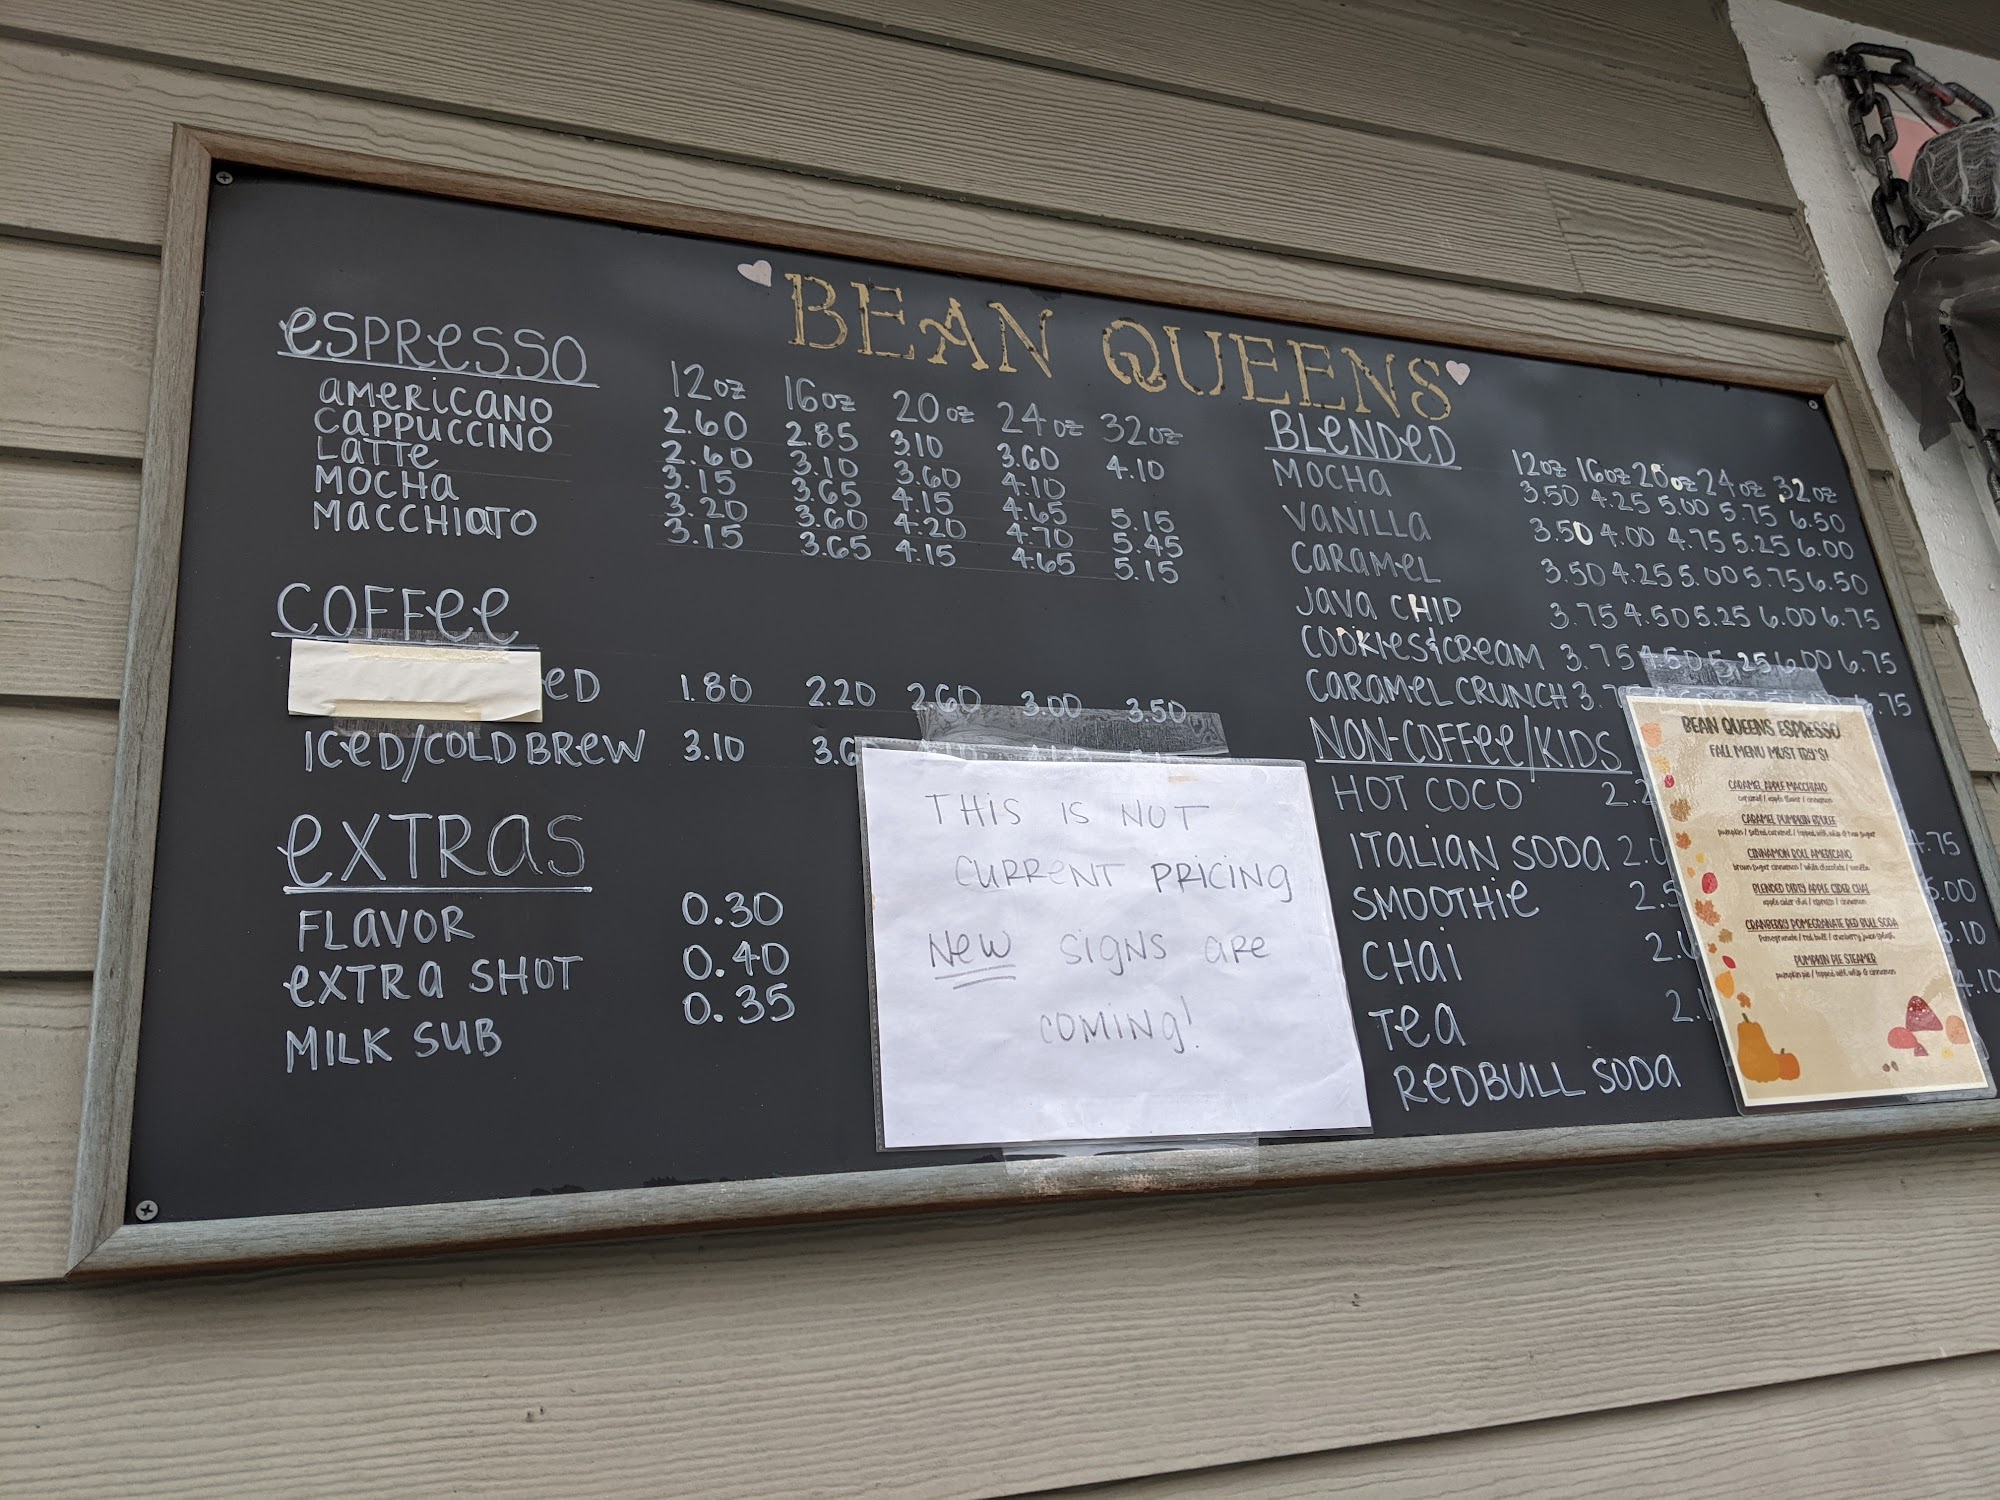 BEAN QUEENS
ESPRESSO
12oz 16oz 20oz 24oz 32oz
AMERICANO 2.60 2.85 3.10 3.60 4.10
CAPPUCCINO 2.60 3.10 3.60 4.10
LATTE 3.15 3.65 4.15 4.65 5.15
MOCHA 3.20 3.60 4.20 4.70 5.45
MACCHIATO 3.15 3.65 4.15 4.65 5.15
COFFEE
ED 1.80 2.20 2.60 3.00 3.50
ICED/COLD BREW 3.10
EXTRAS
FLAVOR 0.30
EXTRA SHOT 0.40
MILK SUB 0.35
THIS IS NOT
CURRENT PRICING
NEW SIGNS ARE
COMING!
BLENDED
12oz 16oz 20oz 24oz 32oz
MOCHA 3.50 4.25 5.00 5.75 6.50
VANILLA 3.50 4.00 4.75 5.25 6.00
CARAMEL 3.50 4.25 5.00 5.75 6.50
JAVA CHIP 3.75 4.50 5.25 6.00 6.75
COOKIES&CREAM 3.75 4.50 5.25 6.00 6.75
CARAMEL CRUNCH
NON-COFFEE/KIDS
HOT COCO
ITALIAN SODA 4.75
SMOOTHIE
CHAI
TEA
REDBULL SODA
BEAN QUEENS ESPRESSO
FALL MENU MUST TRY'S!
CARAMEL APPLE MACCHIATO
caramel / apple flavor / cinnamon
CARAMEL PUMPKIN BRULEE
pumpkin / salted caramel / topped with whip & raw sugar
CINNAMON ROLL AMERICANO
brown sugar cinnamon / white chocolate / vanilla
BLENDED DIRTY APPLE CIDER CHAI
apple cider chai / espresso / cinnamon
CRANBERRY POMEGRANATE RED BULL SODA
Pomegranate / red bull / cranberry juice splash
PUMPKIN PIE STEAMER
pumpkin pie / topped with whip & cinnamon